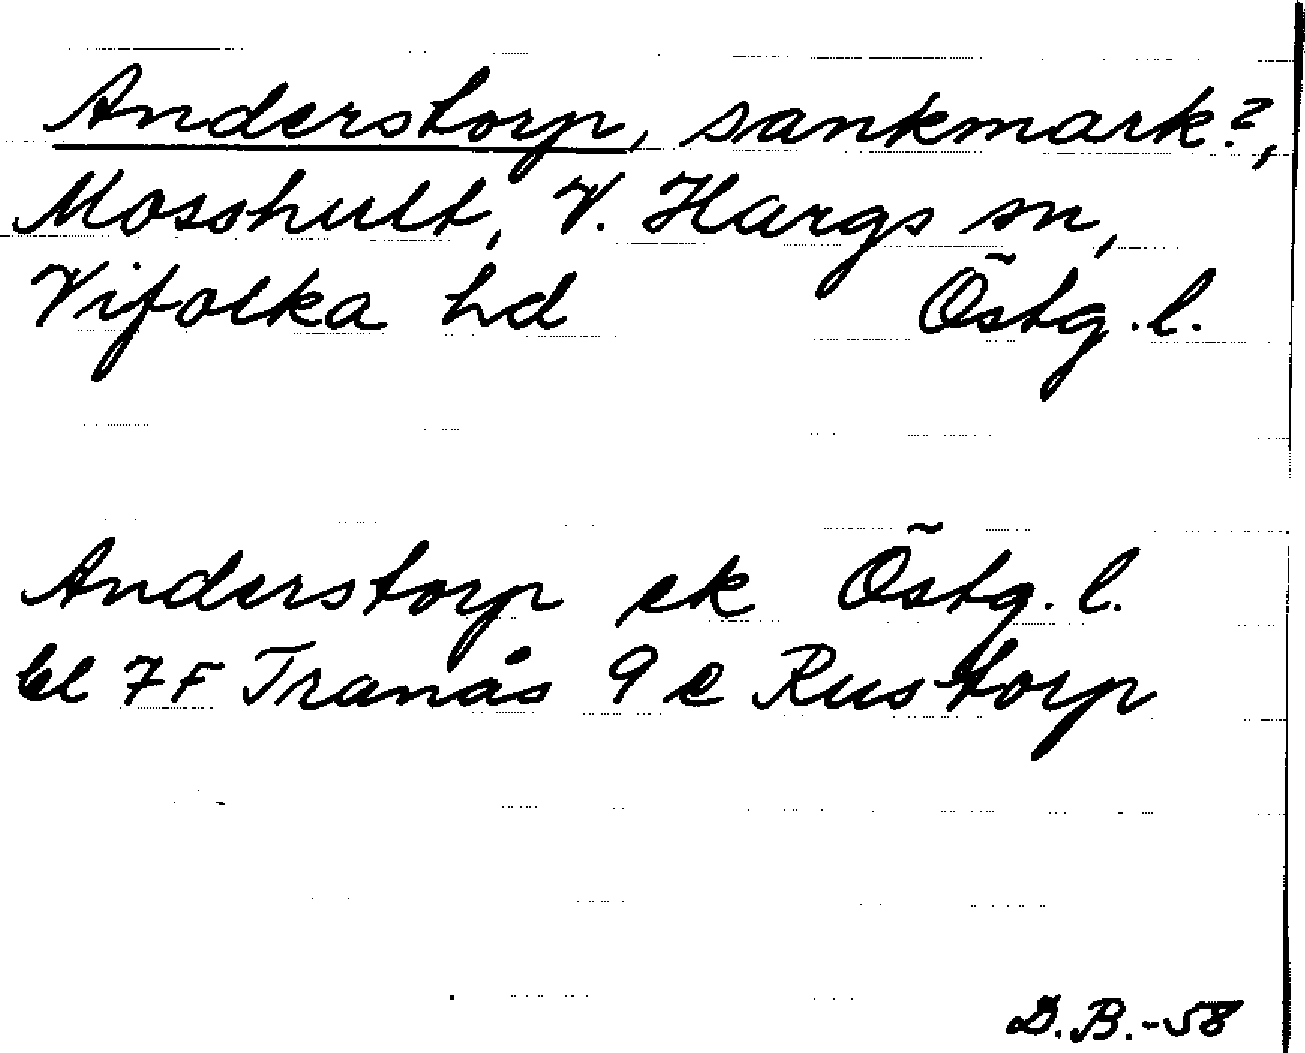 Anderstorp, sankmark?,
Mosshult, V. Hargs sn,
Vifolka hd Östg. l.
Anderstorp ek Östg. l.
bl 7 F Tranås 9 e Rustorp
D.B.-58